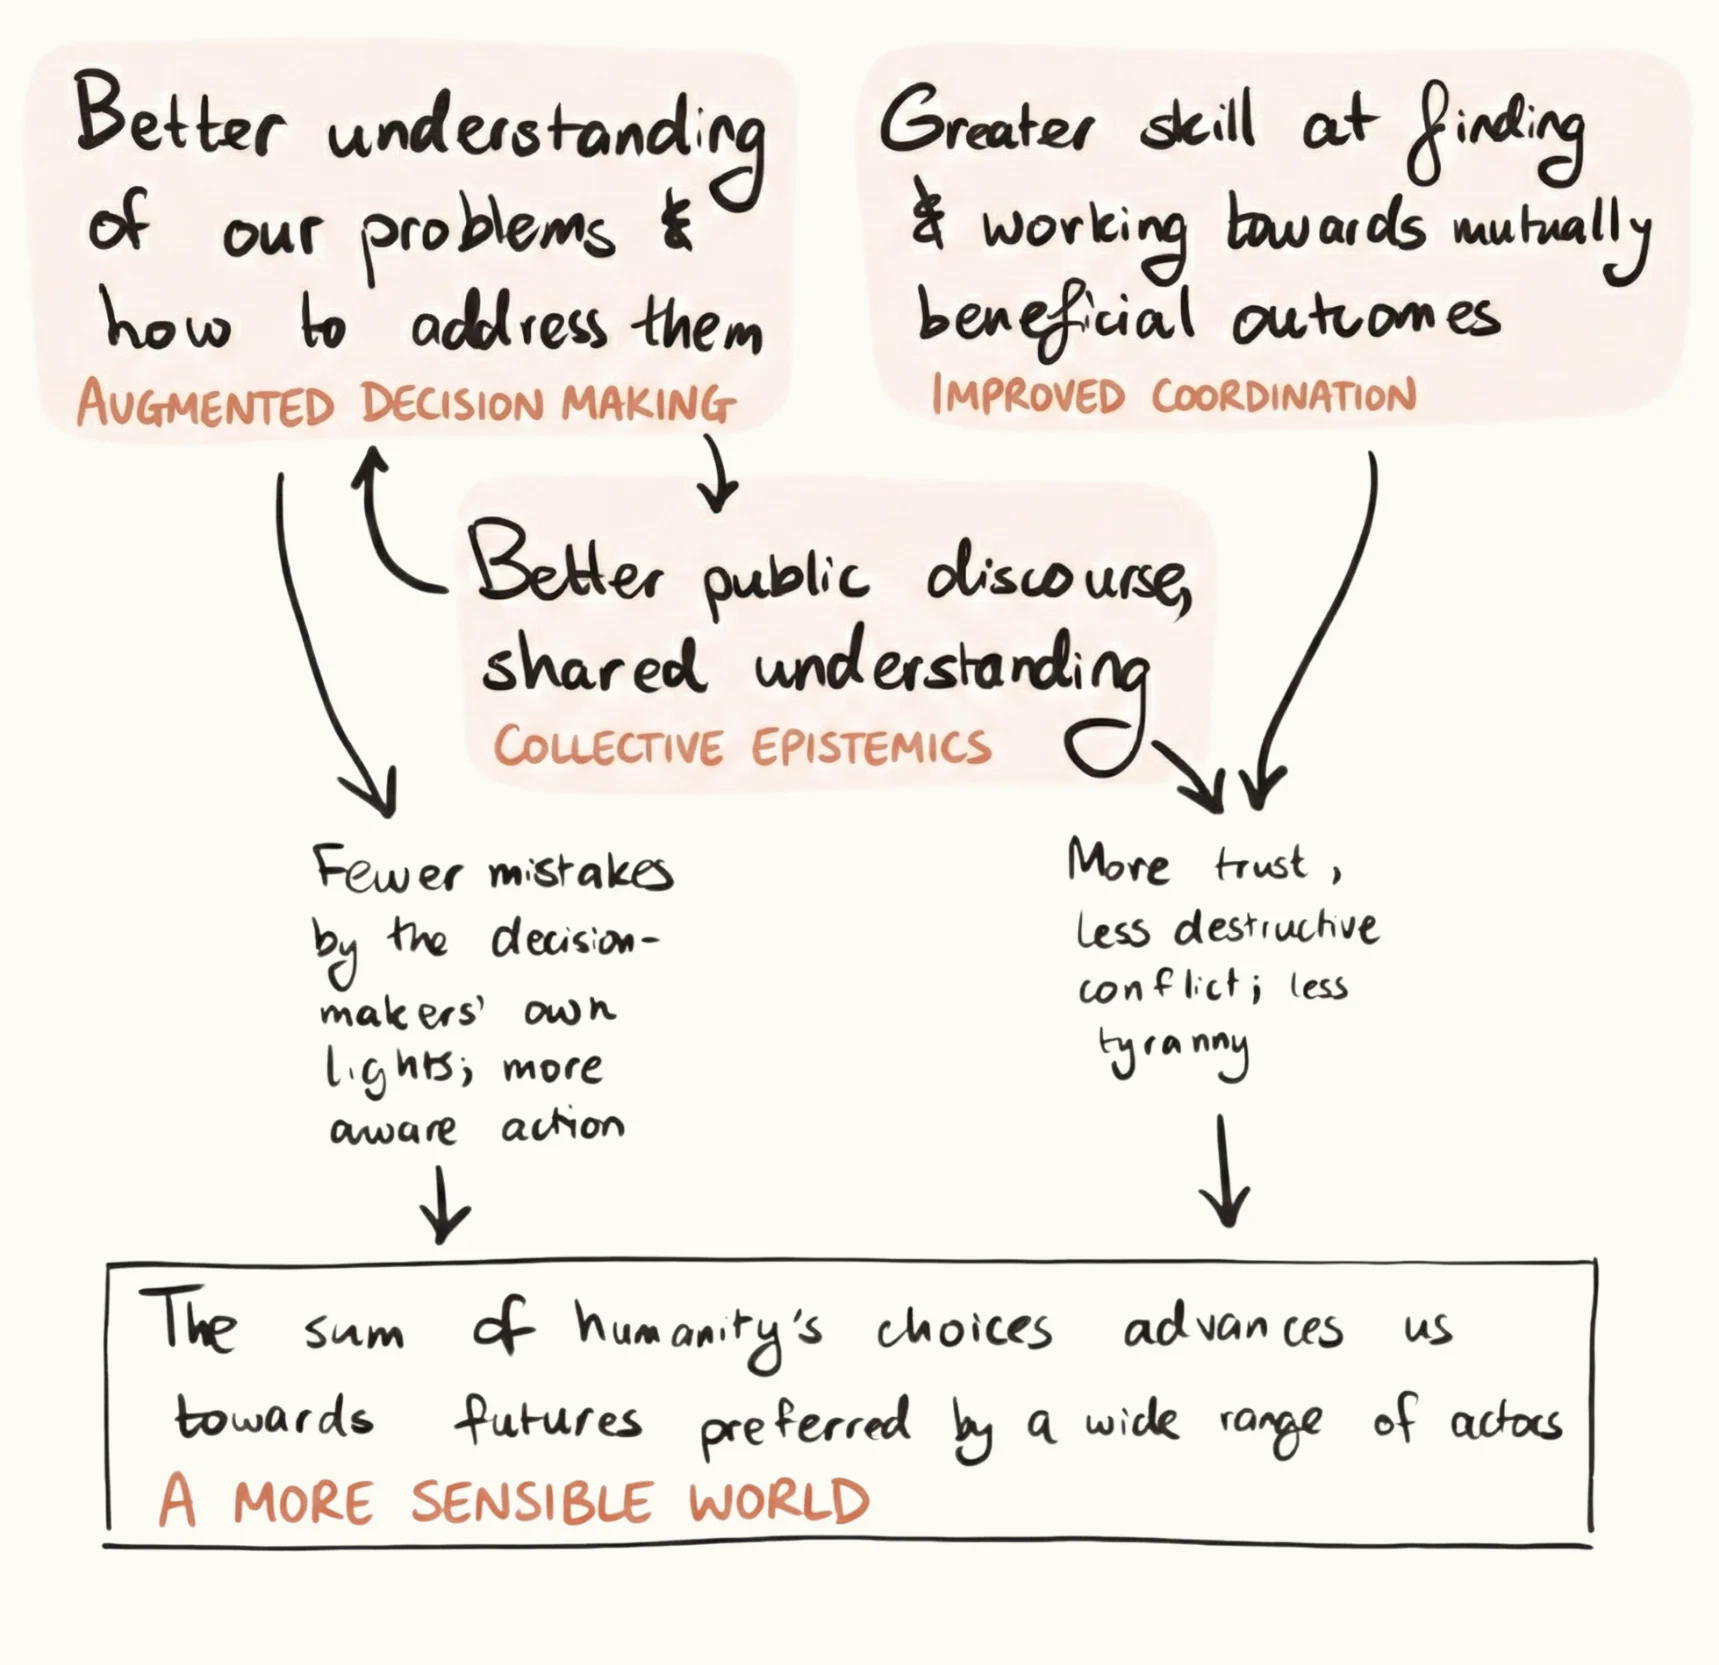 Better understanding
of our problems &
how to address them
AUGMENTED DECISION MAKING
Greater skill at finding
& working towards mutually
beneficial outcomes
IMPROVED COORDINATION
Better public discourse,
shared understanding
COLLECTIVE EPISTEMICS
Fewer mistakes
by the decision-
makers' own
lights; more
aware action
More trust,
less destructive
conflict; less
tyranny
The sum of humanity's choices advances us
towards futures preferred by a wide range of actors
A MORE SENSIBLE WORLD